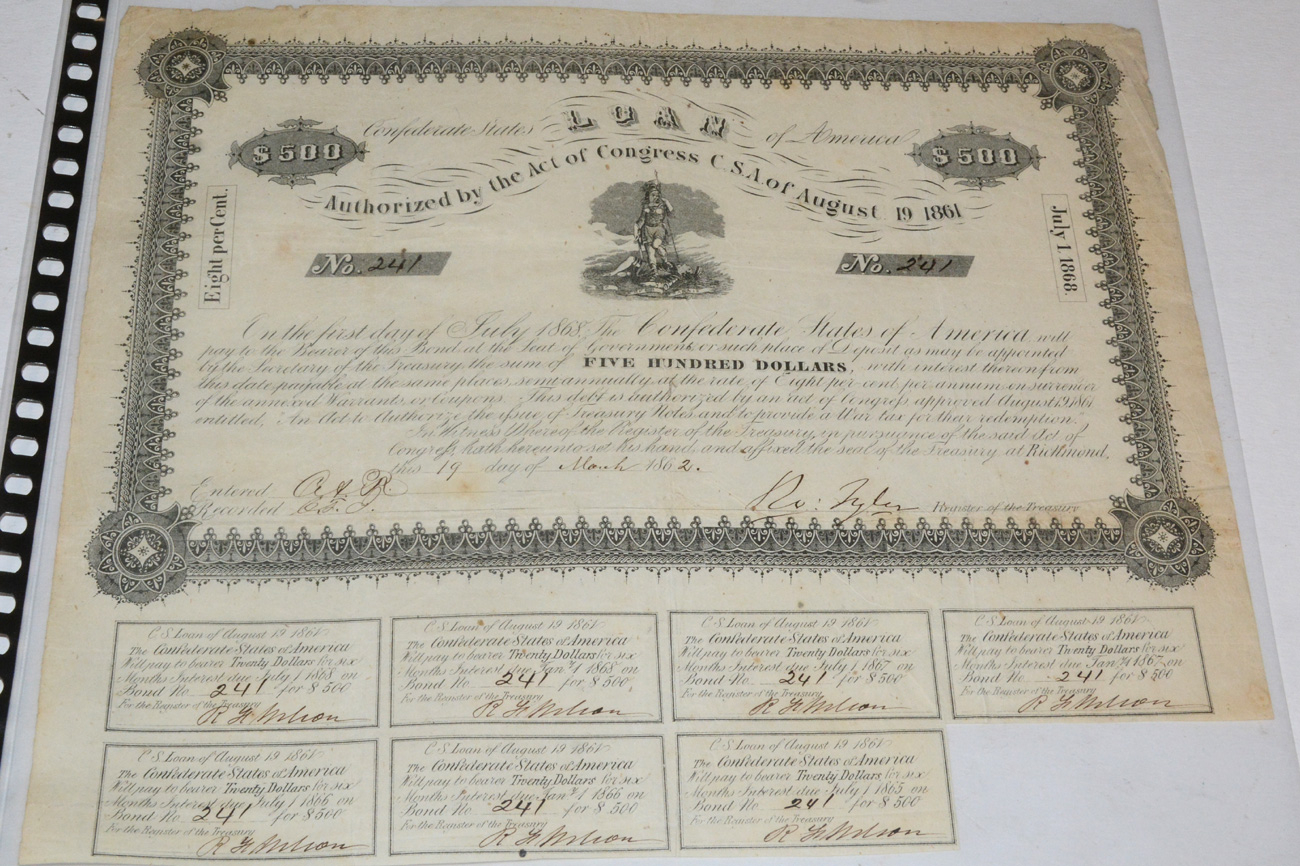 Confederate States LOAN of America
$500
$500
Authorized by the Act of Congress C.S.A of August 19 1861
Eight per Cent.
July 1 1868.
No. 241
No. 241
On the first day of July 1868, The Confederate States of America will
pay to the Bearer of this Bond at the Seat of Government or such place of Deposit as may be appointed
by the Secretary of the Treasury the sum of FIVE HUNDRED DOLLARS, with interest thereon from
this date payable at the same places, semi annually at the rate of Eight per cent per annum on surrender
of the annexed Warrants or coupons. This debt is authorized by an act of Congress approved August 19, 1861
entitled, "An Act to Authorize the issue of Treasury Notes and to provide a War tax for their redemption."
In Witness Whereof the Register of the Treasury, in pursuance of the said Act of
Congress, hath hereunto set his hand, and affixed the seal of the Treasury at Richmond,
this 19 day of March 1862.
Entered
Recorded
Ro: Tyler Register of the Treasury
C.S. Loan of August 19 1861
The Confederate States of America
Will pay to bearer Twenty Dollars for six
Months Interest due July 1 1868 on
Bond No. 241 for $500
For the Register of the Treasury
R H Wilson
C.S. Loan of August 19 1861
The Confederate States of America
Will pay to bearer Twenty Dollars for six
Months Interest due Jany. 1 1868 on
Bond No. 241 for $500
For the Register of the Treasury
R H Wilson
C.S. Loan of August 19 1861
The Confederate States of America
Will pay to bearer Twenty Dollars for six
Months Interest due July 1 1867 on
Bond No. 241 for $500
For the Register of the Treasury
R H Wilson
C.S. Loan of August 19 1861
The Confederate States of America
Will pay to bearer Twenty Dollars for six
Months Interest due Jany. 1 1867 on
Bond No. 241 for $500
For the Register of the Treasury
R H Wilson
C.S. Loan of August 19 1861
The Confederate States of America
Will pay to bearer Twenty Dollars for six
Months Interest due July 1 1866 on
Bond No. 241 for $500
For the Register of the Treasury
R H Wilson
C.S. Loan of August 19 1861
The Confederate States of America
Will pay to bearer Twenty Dollars for six
Months Interest due Jany. 1 1866 on
Bond No. 241 for $500
For the Register of the Treasury
R H Wilson
C.S. Loan of August 19 1861
The Confederate States of America
Will pay to bearer Twenty Dollars for six
Months Interest due July 1 1865 on
Bond No. 241 for $500
For the Register of the Treasury
R H Wilson